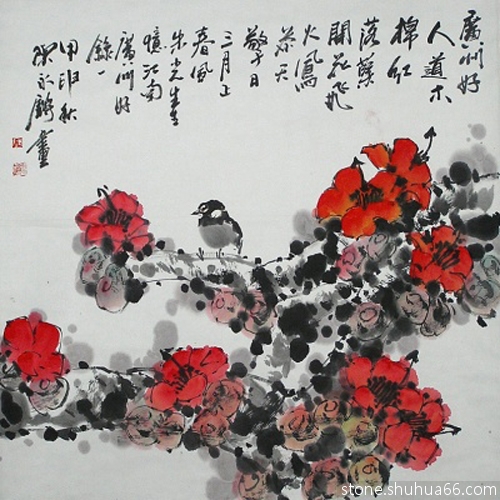 廣州好
人道木
棉紅
落葉
開花飛
火鳳
參天
擎日
三月正
春風
朱光先生
憶江南
廣州好
錄一
甲申秋
陳永鏘畫
stone.shuhua66.com